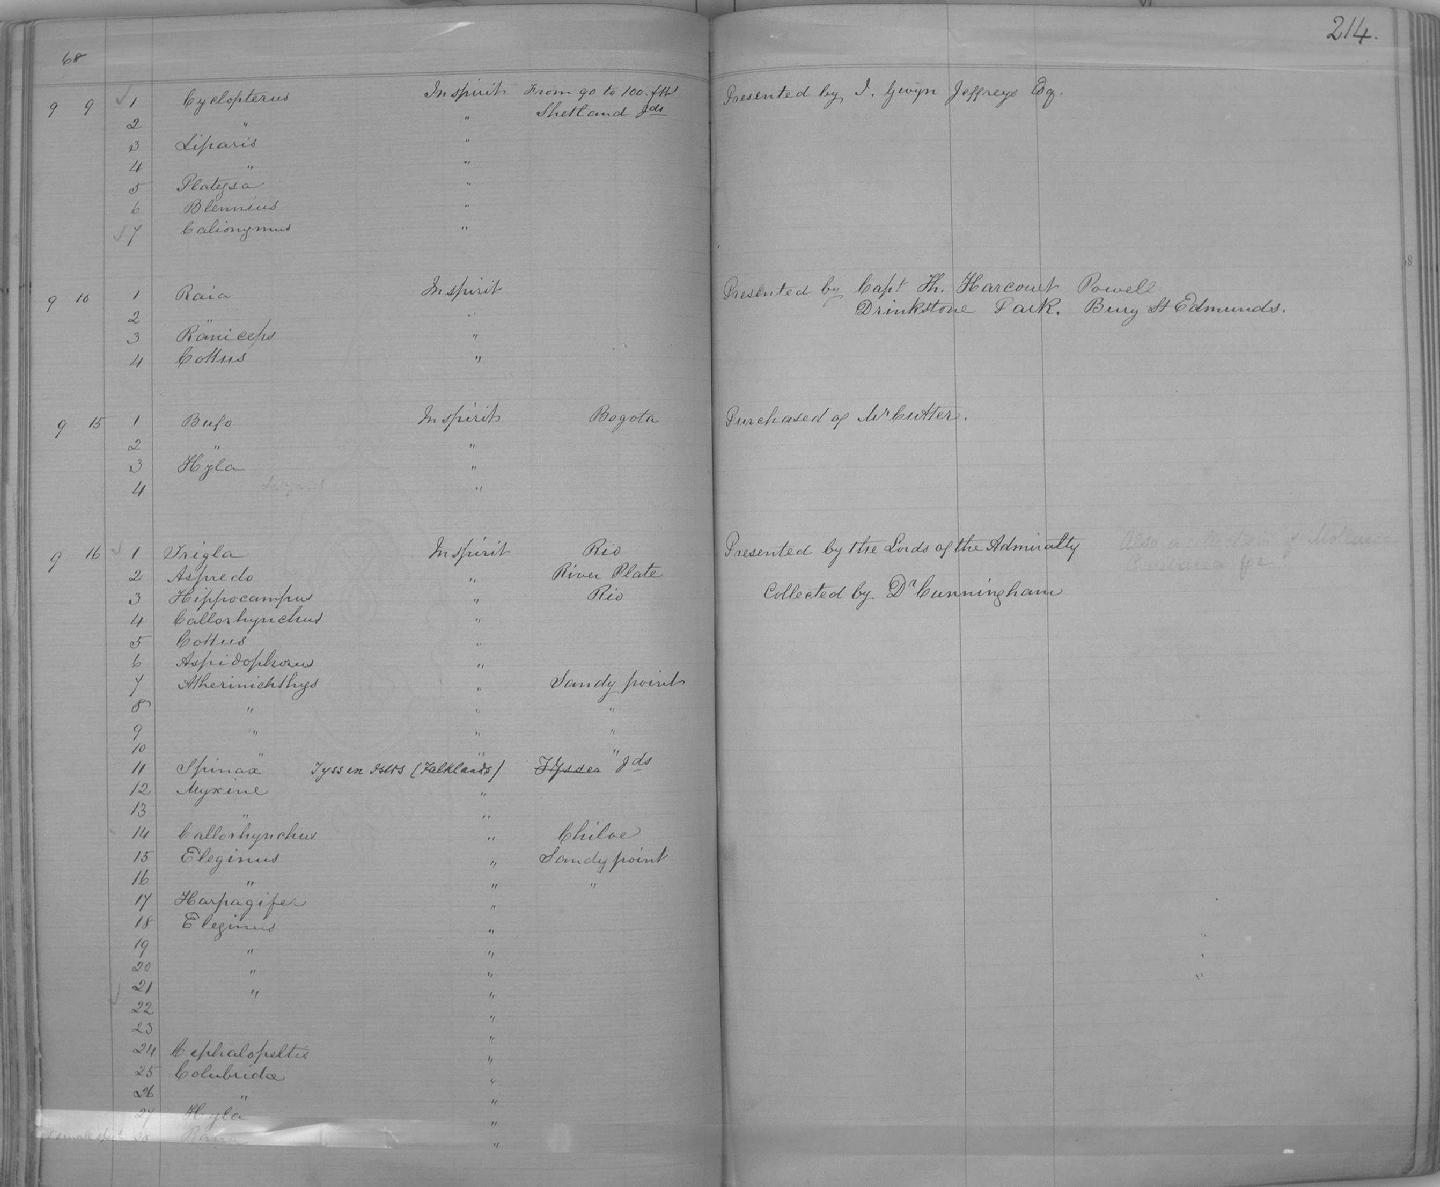 214.
68
9 9 1 Cyclopterus In spirit From 90 to 100 fths Presented by J. Gwyn Jeffreys Esq.
2 " " Shetland Jds
3 Liparis "
4 " "
5 Platessa "
6 Blennius "
7 Calionymus "
9 10 1 Raia In spirit Presented by Capt Th. Harcourt Powell
2 " " Drinkstone Park. Bury St Edmunds.
3 Raniceps "
4 Cottus "
9 15 1 Bufo In spirit Bogota Purchased of Mr Cutter.
2 " "
3 Hyla "
4 "
9 16 1 Trigla In spirit Rio Presented by the Lords of the Admiralty
2 Aspredo " River Plate
3 Hippocampus " Rio Collected by Dr Cunningham
4 Callorhynchus "
5 Cottus "
6 Aspidophorus "
7 Atherinichthys " Sandy point
8 " " "
9 " " "
10 " " "
11 Spinax Tyssen Islds (Falklands) Tyssen Jds
12 Myxine "
13 " "
14 Callorhynchus " Chiloe
15 Eleginus " Sandy point
16 " " "
17 Harpagifer "
18 Eleginus "
19 " "
20 " "
21 " "
22 "
23 "
24 Cephalopeltis "
25 Colubridæ "
26 " "
27 Hyla "
28 "